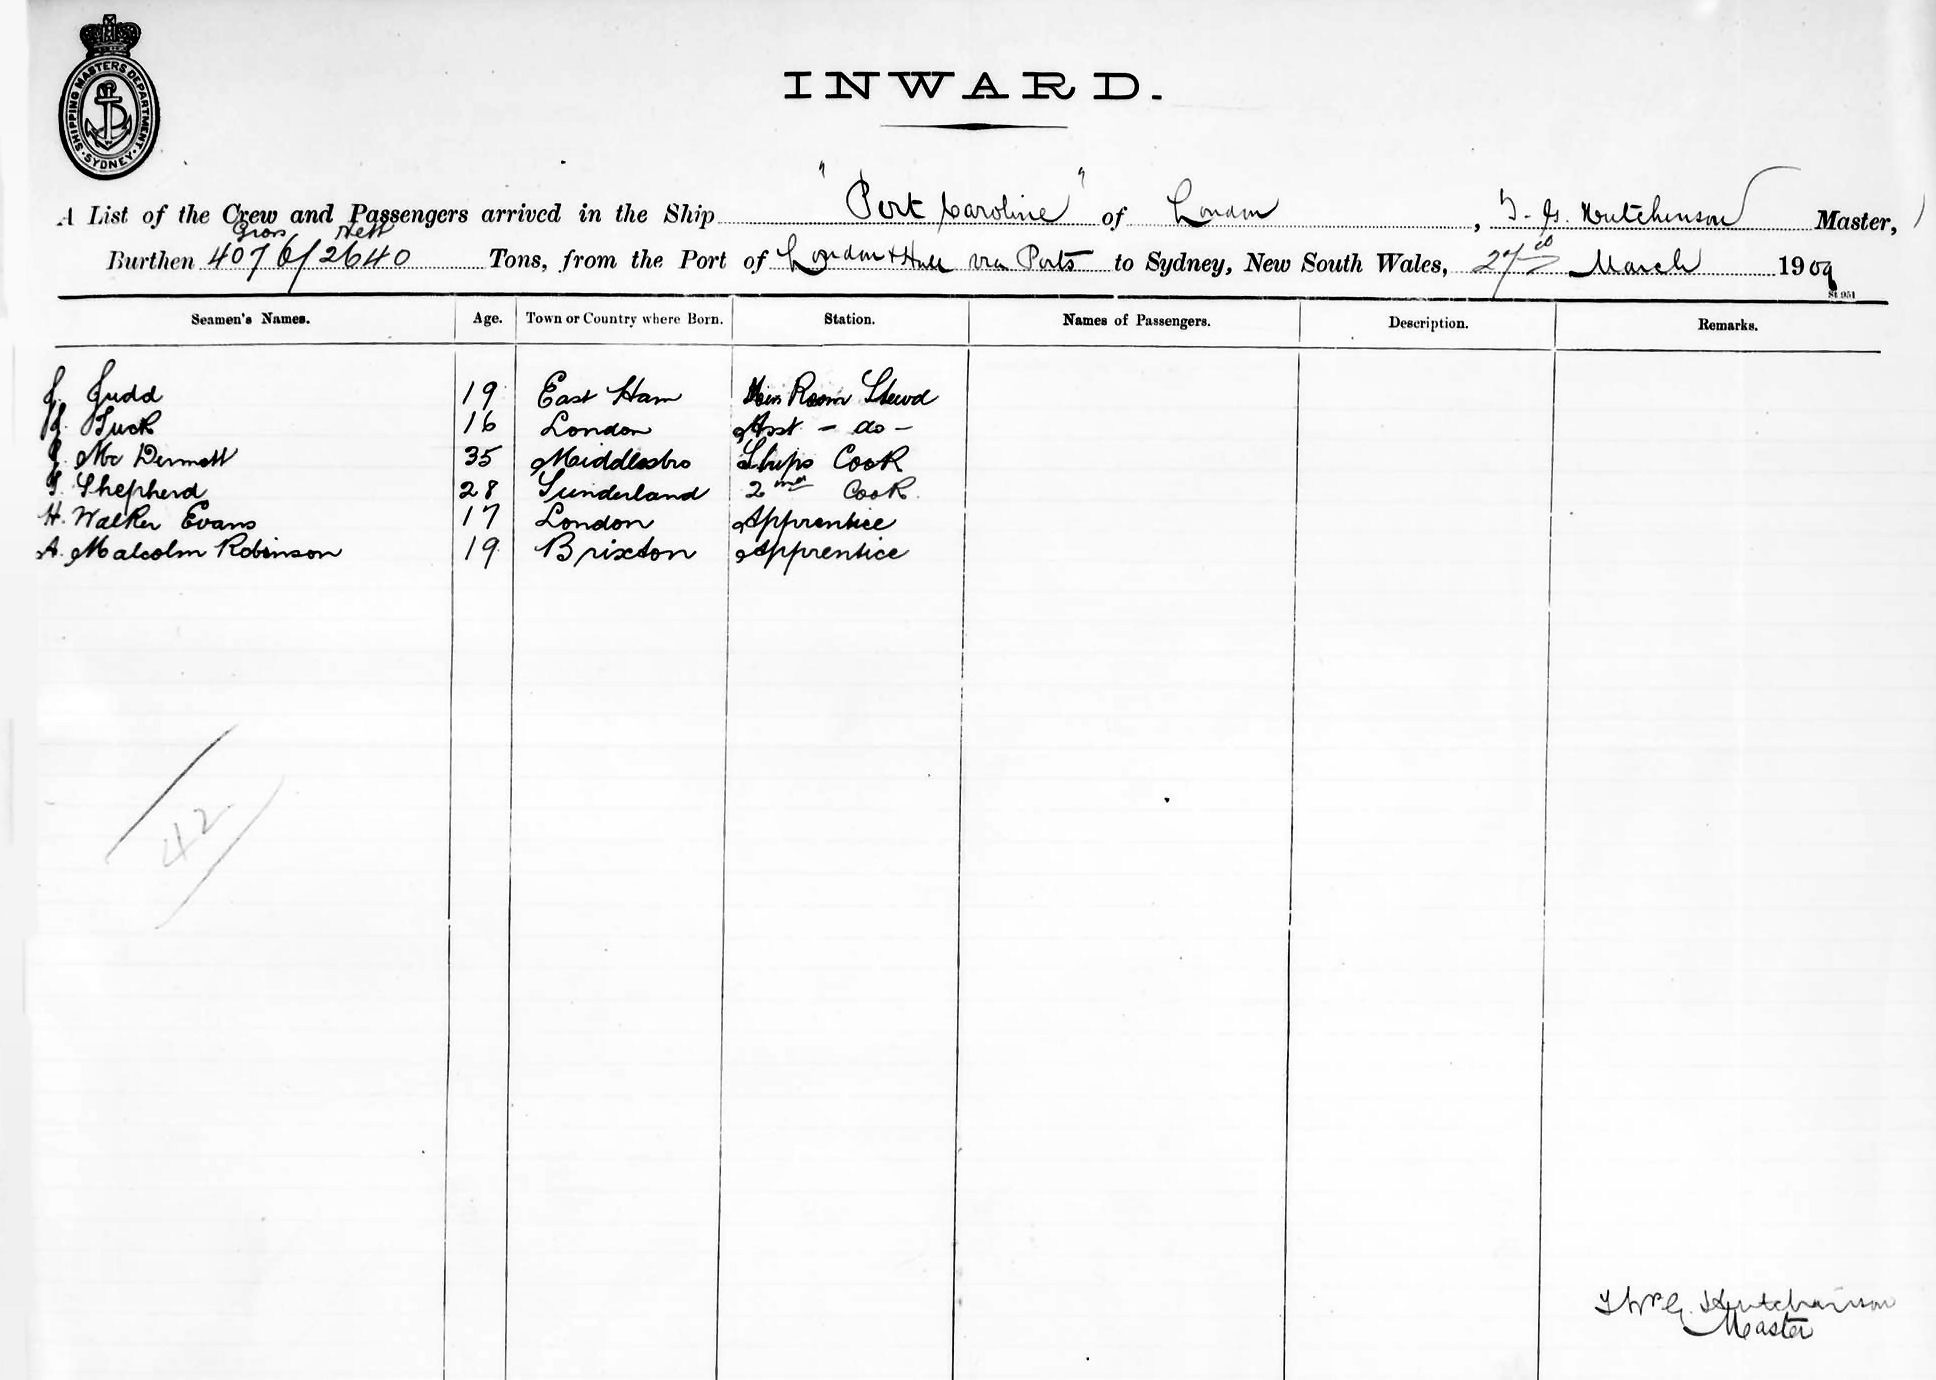 SHIPPING MASTERS DEPARTMENT. SYDNEY.
INWARD.
A List of the Crew and Passengers arrived in the Ship "Port Caroline" of London, T. G. Hutchinson Master,
Gross Nett
Burthen 4076/2640 Tons, from the Port of London & Hull via Ports to Sydney, New South Wales, 27th March 1909
St 951
Seamen's Names. Age. Town or Country where Born. Station. Names of Passengers. Description. Remarks.
J. Judd 19 East Ham Room Stewd
Tuck 16 London Asst - do -
J. Mc Dermott 35 Middlesbro Ships Cook
Shepherd 28 Sunderland 2nd Cook
H. Walker Evans 17 London Apprentice
A. Malcolm Robinson 19 Brixton Apprentice
42
Hutchinson
Master